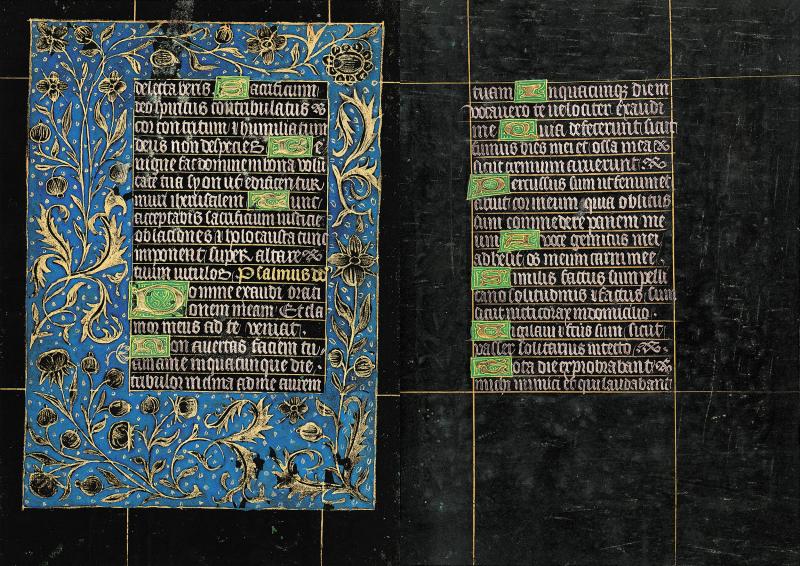 delectaberis. Sacrificium
deo spiritus contribulatus
cor contritum et humiliatum
deus non despicies. Be
nigne fac domine in bona volu
tate tua syon ut edificentur
muri iherusalem Tunc
acceptabis sacrificium iusticie
oblaciones et holocausta tunc
imponent super altare
tuum vitulos. Psalmus da
Domine exaudi orati
onem meam Et cla
mor meus ad te veniat.
Non avertas faciem tu
am a me in quacunque die
tribulor inclina ad me aurem
tuam In quacunque diem
vocavero te velociter exaudi
me Quia defecerunt sicut
fumus dies mei et ossa mea
sicut cremium aruerunt.
Percussus sum ut fenum et
aruit cor meum quia oblitus
sum commedere panem me
um A voce gemitus mei
adhesit os meum carni mee.
Similis factus sum pelli
cano solitudinis et factus sum
sicut nicticorax in domicilio.
Vigilavi et factus sum sicut
passer solitarius in tecto.
Tota die exprobrabant
michi inimici et qui laudabant